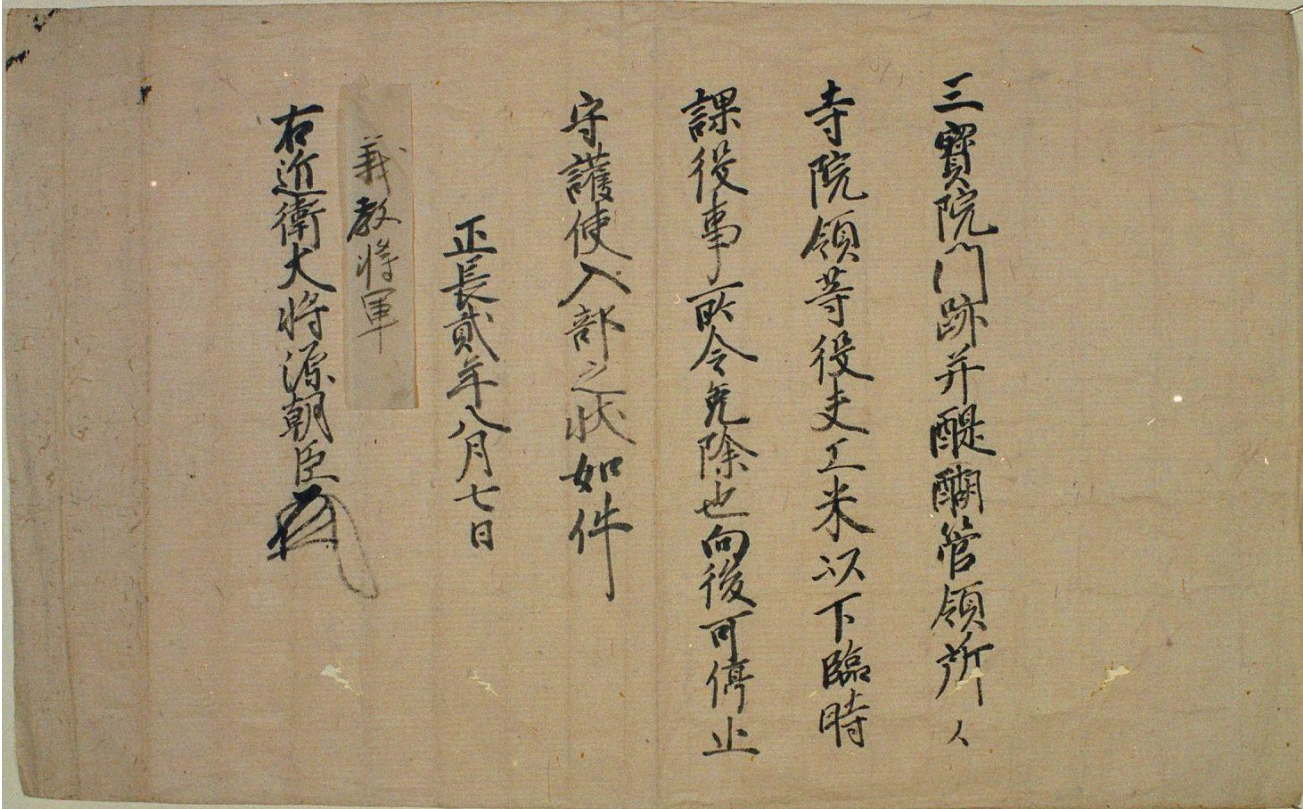 三寶院門跡并醍醐管領所々
寺院領等役夫工米以下臨時
課役事所令免除也向後可停止
守護使入部之状如件
正長貳年八月七日
義教将軍
右近衛大将源朝臣